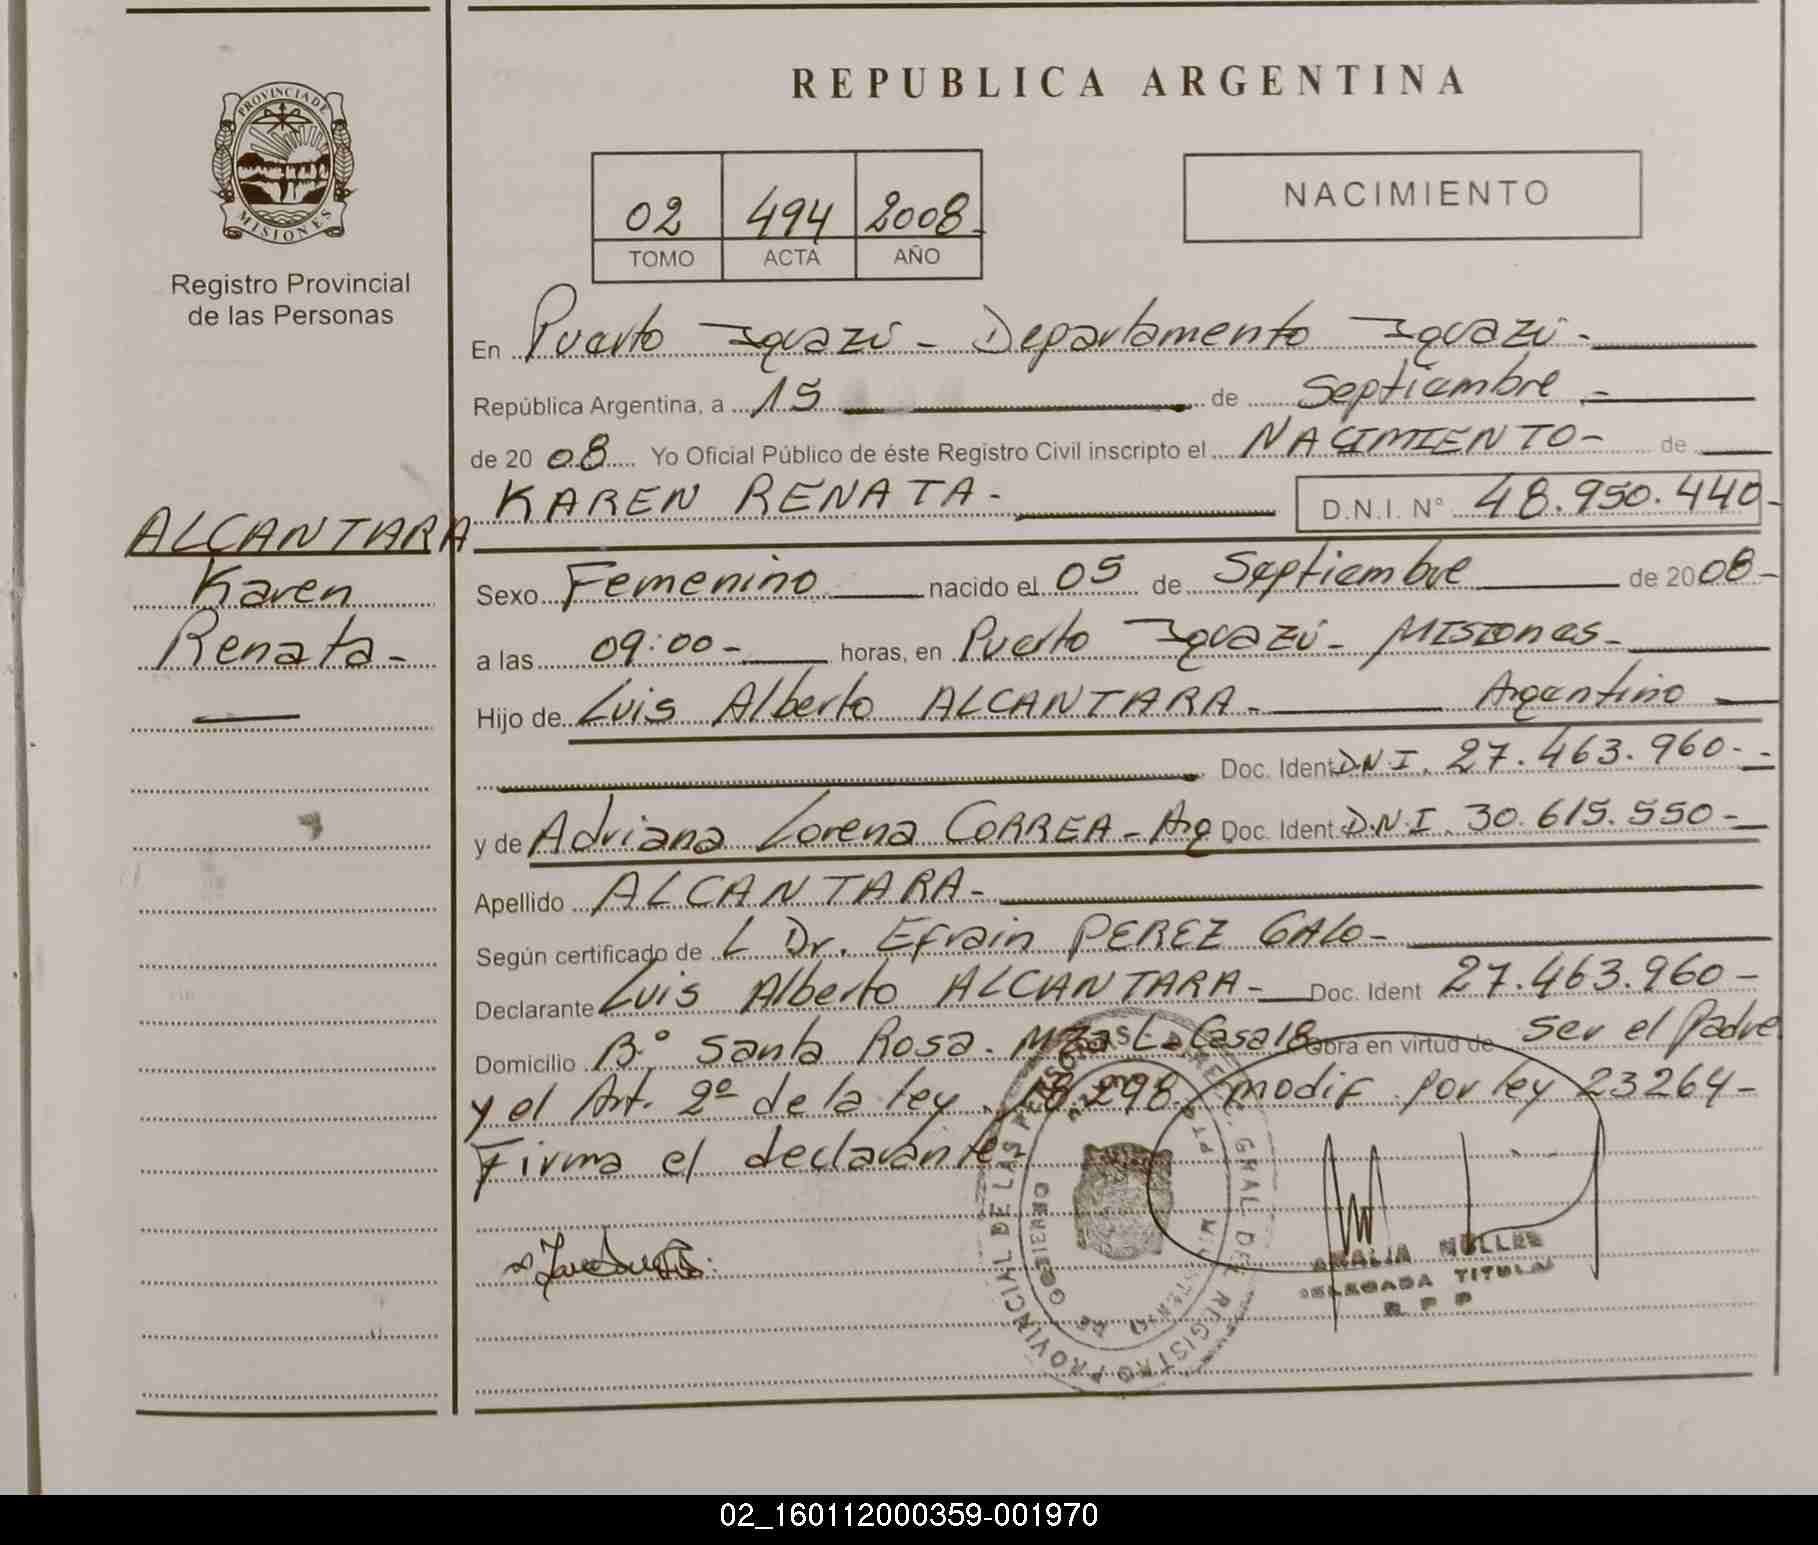 REPUBLICA ARGENTINA
PROVINCIA DE
MISIONES
Registro Provincial
de las Personas
02 494 2008-
TOMO ACTA AÑO
NACIMIENTO
En Puerto Iguazú - Departamento Iguazú -
República Argentina, a 15 de Septiembre -
de 2008 Yo Oficial Público de éste Registro Civil inscripto el NACIMIENTO - de
KAREN RENATA - D.N.I. N° 48.950.440-
ALCANTARA
Karen
Renata -
Sexo Femenino nacido el 05 de Septiembre de 2008-
a las 09:00 - horas, en Puerto Iguazú - Misiones -
Hijo de Luis Alberto ALCANTARA - Argentino
Doc. Ident D.N.I. 27.463.960-
y de Adriana Lorena CORREA - Arg Doc. Ident D.N.I. 30.615.550-
Apellido ALCANTARA -
Según certificado de L Dr. Efrain PEREZ GALO -
Declarante Luis Alberto ALCANTARA - Doc. Ident 27.463.960-
Domicilio B.° Santa Rosa. Casa 18 Obra en virtud de ser el Padre
y el Art. 2º de la ley 18.298 modif por ley 23264-
Firma el declarante
REGISTRO PROVINCIAL DE LAS PERSONAS
GRAL. DEL
GOBIERNO
AMALIA MULLER
DELEGADA TITULAR
R P P
02_160112000359-001970